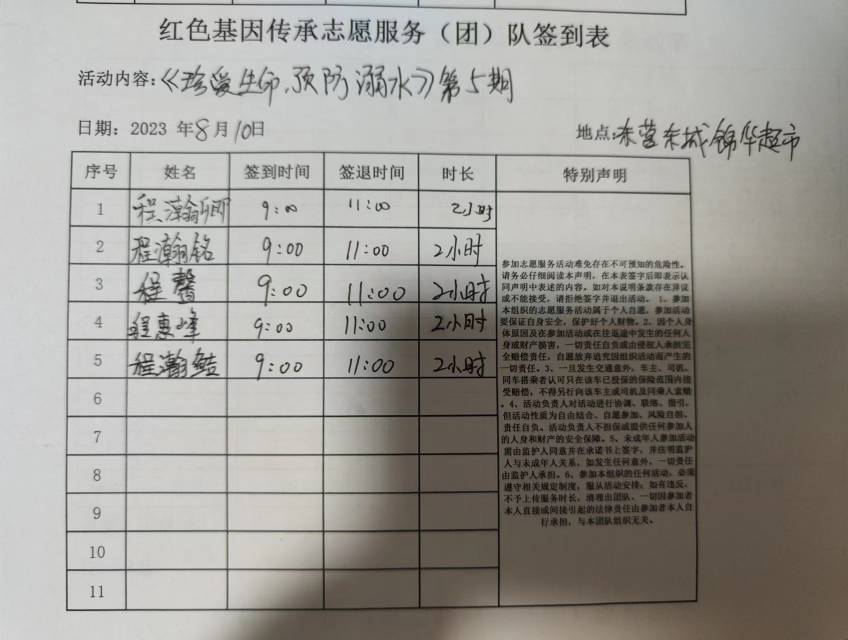 红色基因传承志愿服务（团）队签到表
活动内容：《珍爱生命，预防溺水》第5期
日期：2023 年8月10日
地点：东营东城锦华超市
序号 姓名 签到时间 签退时间 时长 特别声明
1 程瀚卿 9:00 11:00 2小时
2 程瀚铭 9:00 11:00 2小时
3 程馨 9:00 11:00 2小时
4 程惠峰 9:00 11:00 2小时
5 程瀚喆 9:00 11:00 2小时
6
7
8
9
10
11
参加志愿服务活动难免存在不可预知的危险性。
请务必仔细阅读本声明，在本表签字后即表示认
同声明中表述的内容。如对本说明条款存在异议
或不能接受，请拒绝签字并退出活动。 1、参加
本组织的志愿服务活动属于个人自愿，参加活动
要保证自身安全，保护好个人财物。2、因个人身
体原因及在参加活动或在往返途中发生的任何人
身或财产损害，一切责任自负或由侵权人承担完
全赔偿责任，自愿放弃追究因组织活动而产生的
一切责任。3、一旦发生交通意外，车主、司机、
同车搭乘者认可只在该车已投保的保险范围内接
受赔偿，不得另行向该车主或司机及同乘人索赔
。4、活动负责人对活动进行协调、联络、指引，
但活动性质为自由结合、自愿参加、风险自担、
责任自负。活动负责人不担保或提供任何参加人
的人身和财产的安全保障。5、未成年人参加活动
需由监护人同意并在承诺书上签字，并注明监护
人与未成年人关系，如发生任何意外，一切责任
由监护人承担。6、参加本组织的任何活动，必须
遵守相关规定制度，服从活动安排；如有违反，
不予上传服务时长，清理出团队，一切因参加者
本人直接或间接引起的法律责任由参加者本人自
行承担，与本团队组织无关。